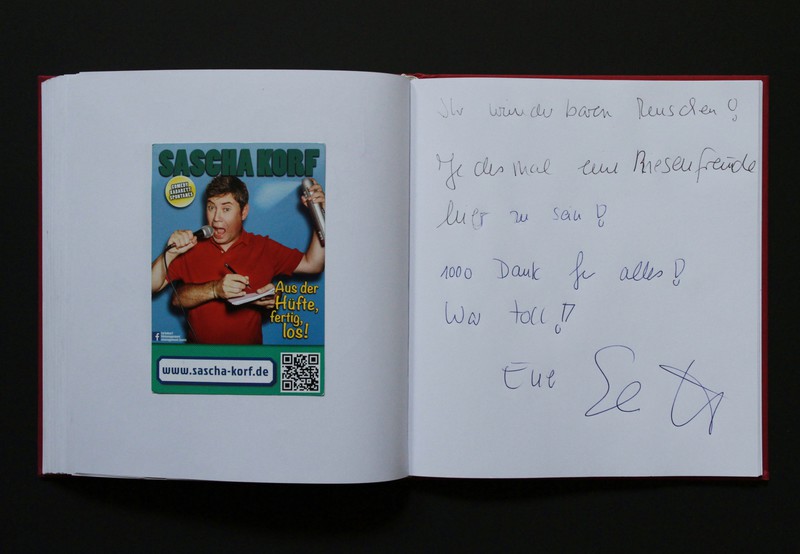 SASCHA KORF
COMEDY
KABARETT
SPONTANES
Aus der
Hüfte,
fertig,
los!
www.sascha-korf.de
Ihr wunderbaren Menschen!
Jedesmal eine Riesenfreude
hier zu sein!
1000 Dank für alles!
War toll!
Euer